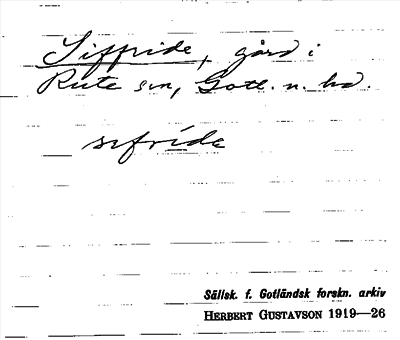 Siffride, gård i
Rute sn, Gotl. n. hd.
sifríde
Sällsk. f. Gotländsk forskn. arkiv
HERBERT GUSTAVSON 1919—26